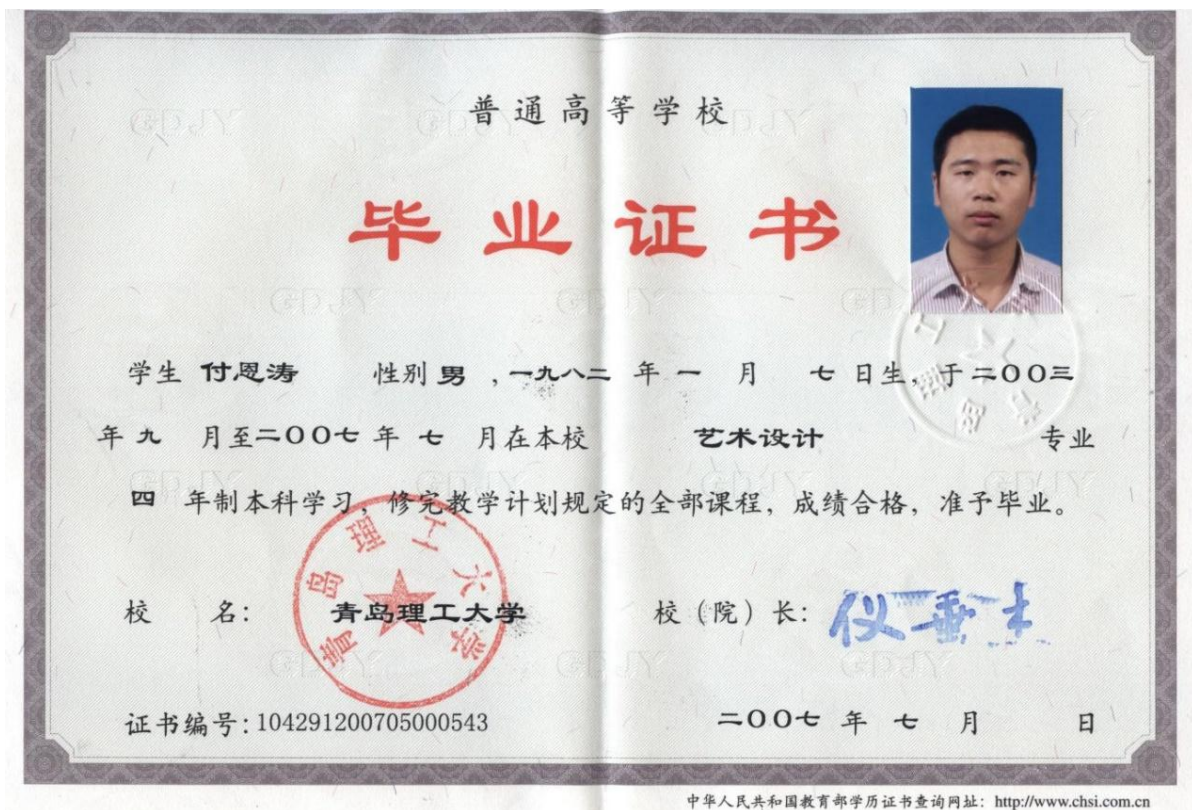 普通高等学校
毕业证书
学生 付恩涛 性别 男 ，一九八二 年 一 月 七 日生，于 二〇〇三
年 九 月至二〇〇七 年 七 月在本校 艺术设计 专业
四 年制本科学习，修完教学计划规定的全部课程，成绩合格，准予毕业。
青岛理工大学
校 名： 青岛理工大学 校（院）长： 仪垂杰
证书编号：104291200705000543 二〇〇七 年 七 月 日
中华人民共和国教育部学历证书查询网址：http://www.chsi.com.cn